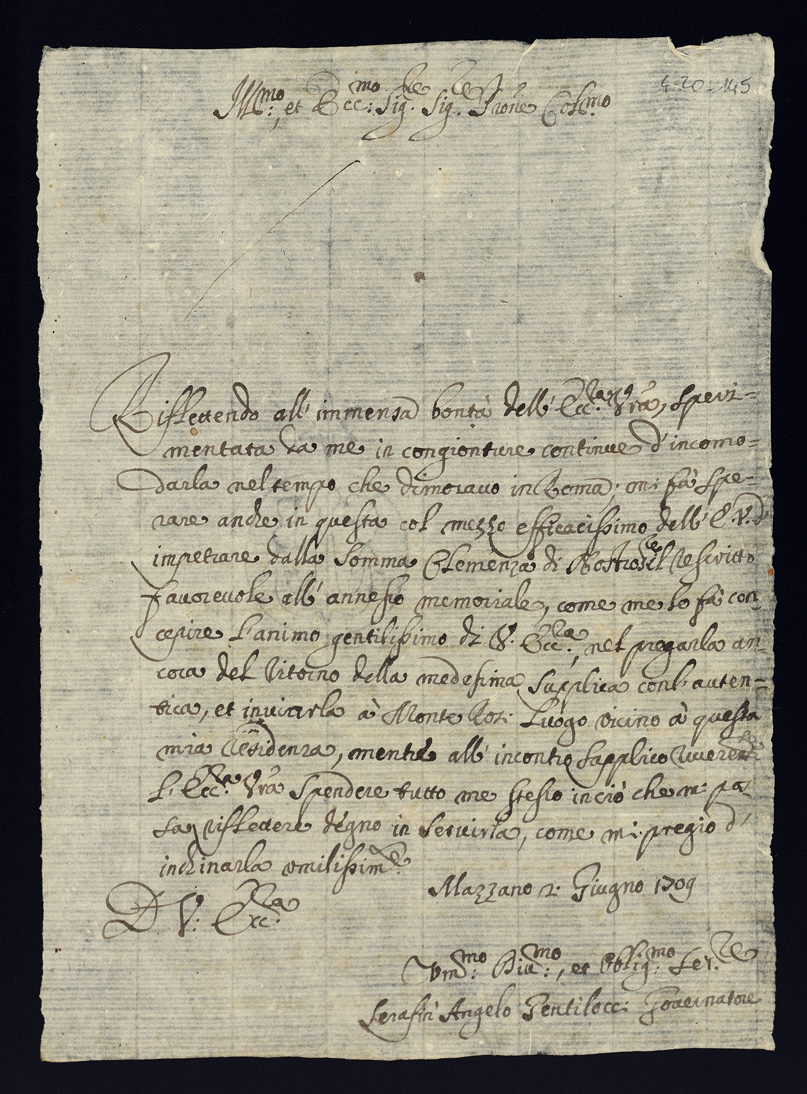 4-20-145
Ill.mo et Ecc:mo Sig.re Sig.re Prone Col.mo
Riflettendo all' immensa bontà dell' Ecc.za Vra, speri=
mentata da me in congionture continue d'incomo=
darla nel tempo che dimoravo in Roma; mi fà spe=
rare anche in questa col mezzo efficacissimo dell' E.V. d'
impetrare dalla somma Clemenza di Nostro Sig.re il Rescritto
favorevole all' annesso memoriale, come me lo fà con
cepire l'animo gentilissimo di V. Ecc.za, nel pregarla an=
cora del ritorno della medesima supplica coll' auten=
tica, et inviarla à Monte Ros: luogo vicino à questa
mia residenza, mentre all' incontro supplico
l' Ecc.za Vra spendere tutto me stesso in ciò che mi pas
sa riflettere degno in servirla, come mi pregio d'
inchinarla umilissim.te
Mazzano 2: Giugno 1709
D. V. Ecc.za
Um.mo Div.mo, et Oblig.mo Ser.re
Serafin' Angelo Gentilocci Governatore